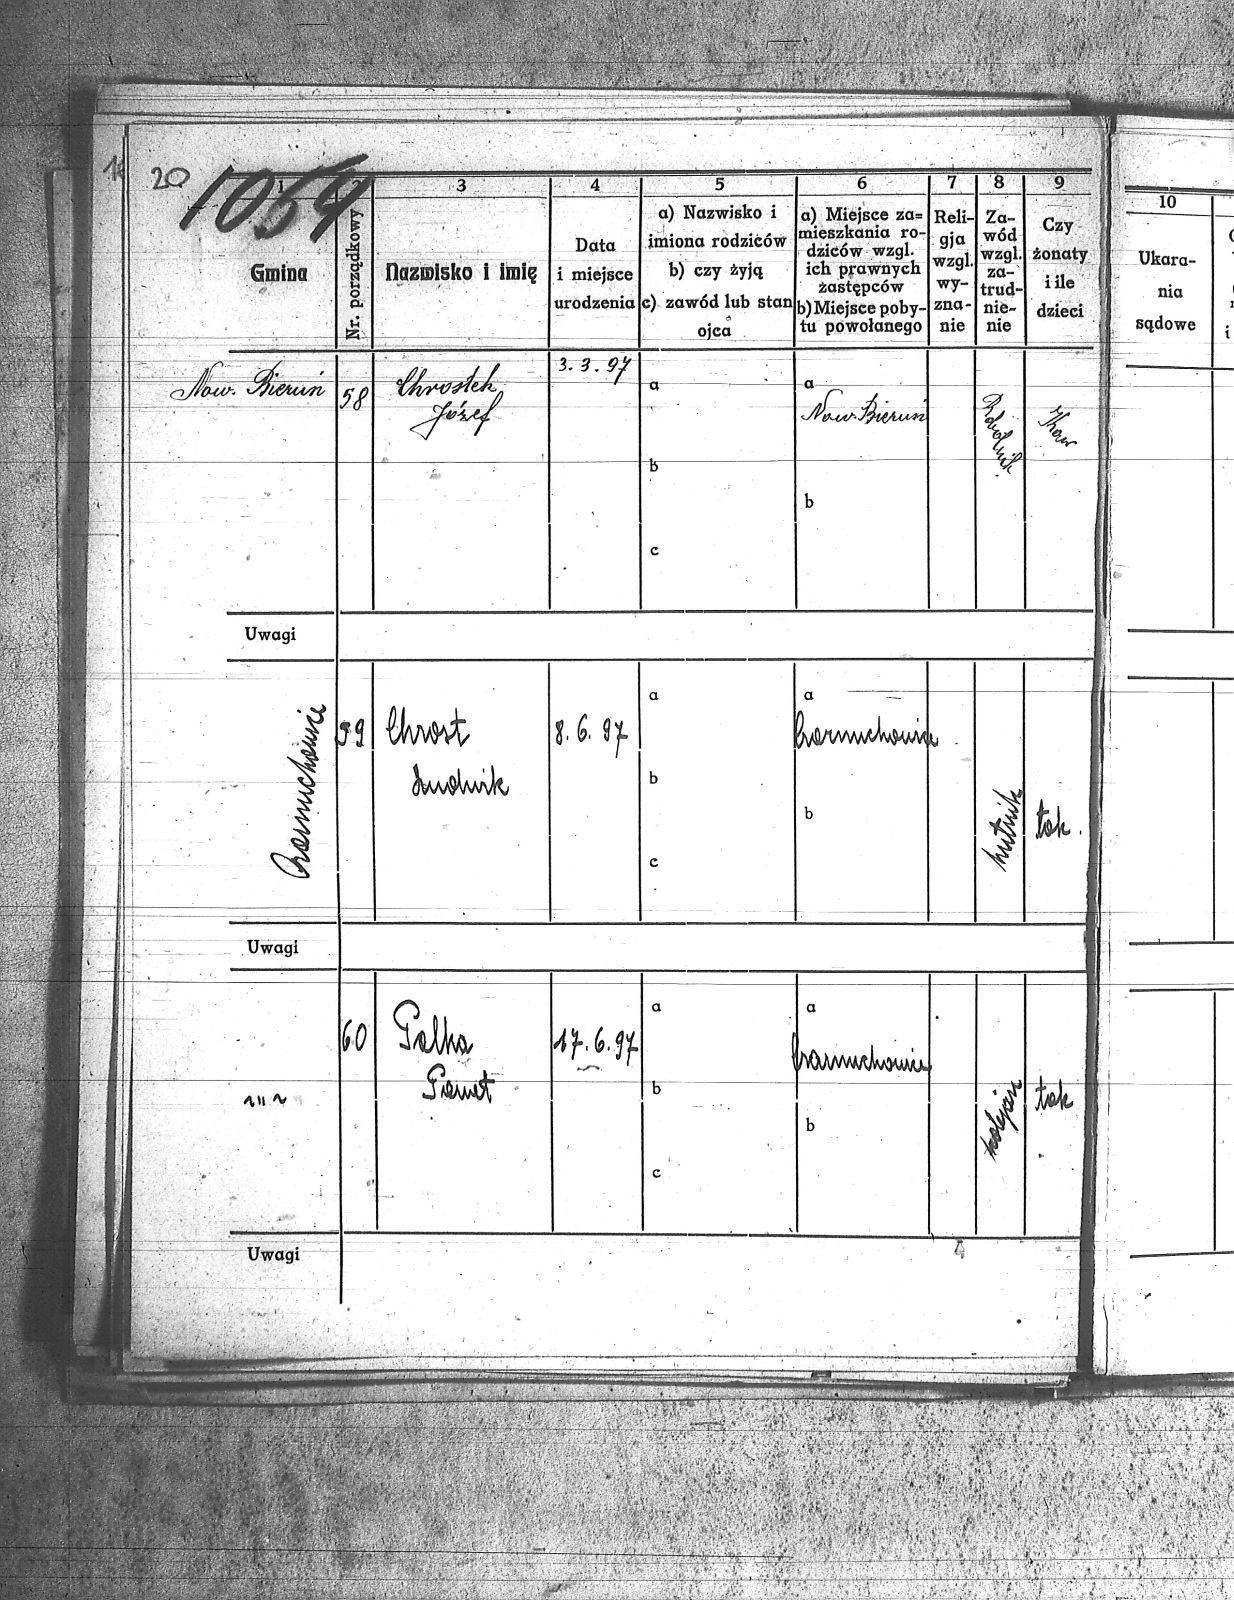 20
1059
1
2
3
4
5
6
7
8
9
10
Gmina
Nr. porządkowy
Nazwisko i imię
Data
i miejsce
urodzenia
a) Nazwisko i
imiona rodziców
b) czy żyją
c) zawód lub stan
ojca
a) Miejsce za=
mieszkania ro-
dziców wzgl.
ich prawnych
zastępców
b) Miejsce poby-
tu powołanego
Reli-
gja
wzgl.
wy-
zna-
nie
Za-
wód
wzgl.
za-
trud-
nie-
nie
Czy
żonaty
i ile
dzieci
Ukara-
nia
sądowe
Now. Bieruń
58
Chrostek
Józef
3. 3. 97
a
b
c
a
Now. Bieruń
b
Robotnik
Uwagi
Czarnuchowice
59
Chrost
Ludwik
8. 6. 97
a
b
c
a
Czarnuchowice
b
hutnik
tak.
Uwagi
~ıı~
60
Palka
17. 6. 97
a
b
c
a
Czarnuchowice
b
kolejarz
tak
Uwagi